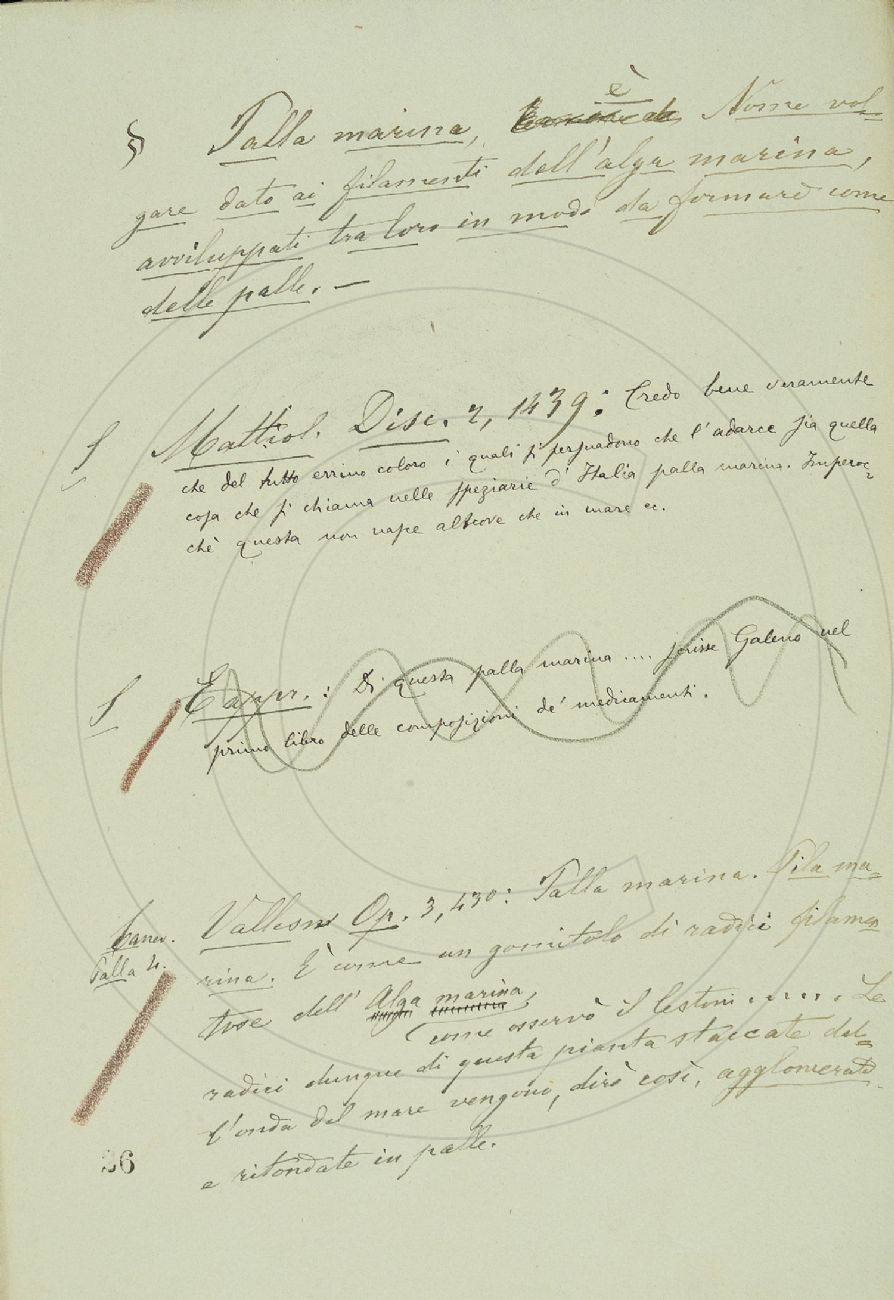 § Palla marina, è Nome vol=
gare dato ai filamenti dell'alga marina,
avviluppati tra loro in modo da formare come
delle palle. —
§ Mattiol. Disc. 2, 1439: Credo bene veramente
che del tutto errino coloro i quali si persuadono che l'adarce sia quella
cosa che si chiama nelle speziarie d'Italia palla marina. Imperoc=
chè questa non nasce altrove che in mare ec.
§ E appr.: Di questa palla marina .... scrisse Galeno nel
primo libro delle composizioni de' medicamenti.
Vallisn. Op. 3, 430: Palla marina. Pila ma=
Palla 4. rina. È come un gomitolo di radici filamen
tose dell' Alga marina,
come osservò il Cestoni ..... Le
radici dunque di questa pianta staccate dal=
l'onda del mare vengono, dirò così, agglomerate
e ritondate in palle.
26